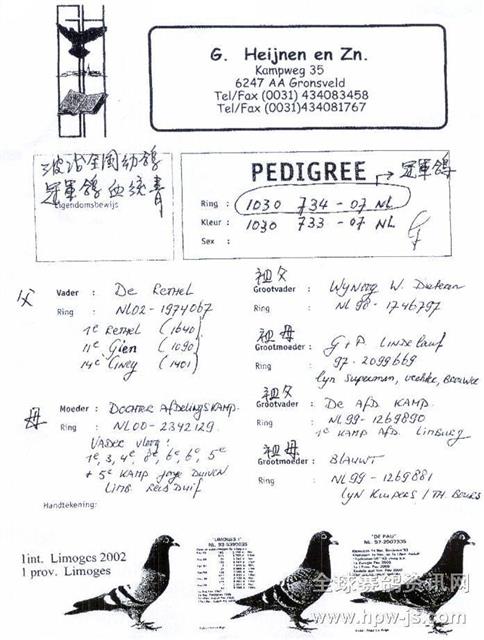 G. Heijnen en Zn.
Kampweg 35
6247 AA Gronsveld
Tel/Fax (0031) 434083458
Tel/Fax (0031)434081767
冠軍鴿血統書
Eigendomsbewijs
PEDIGREE → 冠軍鴿
Ring : 1030 734-07 NL
Kleur : 1030 733-07 NL
Sex :
父
Vader : De Rethel
Ring : NL02-1974067
1e Rethel (1640)
11e Gien (1090)
14e Giney (1401)
祖父
Grootvader : Wynoog W. Dieteren
Ring NL 98-1746797
祖母
Grootmoeder : G+P Lindelauf
Ring 97-2099669
Lyn Superman,
母
Moeder : Dochter Afdelingskamp.
Ring : NL00-2342129
Vader vloog:
1e, 3, 4e, 8e, 6e, 6e, 5e
+ 5e Kamp jonge Duiven
Limb. Reisduif
祖父
Grootvader : De Afd Kamp
Ring NL99-1269890
1e Kamp Afd. Limburg
祖母
Grootmoeder : Blauwt
Ring NL99-1269881
Lyn Kuipers / Th. Beurs
Handtekening:
1int. Limoges 2002
1 prov. Limoges
"LIMOGES I"
NL 93-5390035
"DE PAU"
NL 97-2007335
全球赛鸽资讯网
www.hpw-js.com